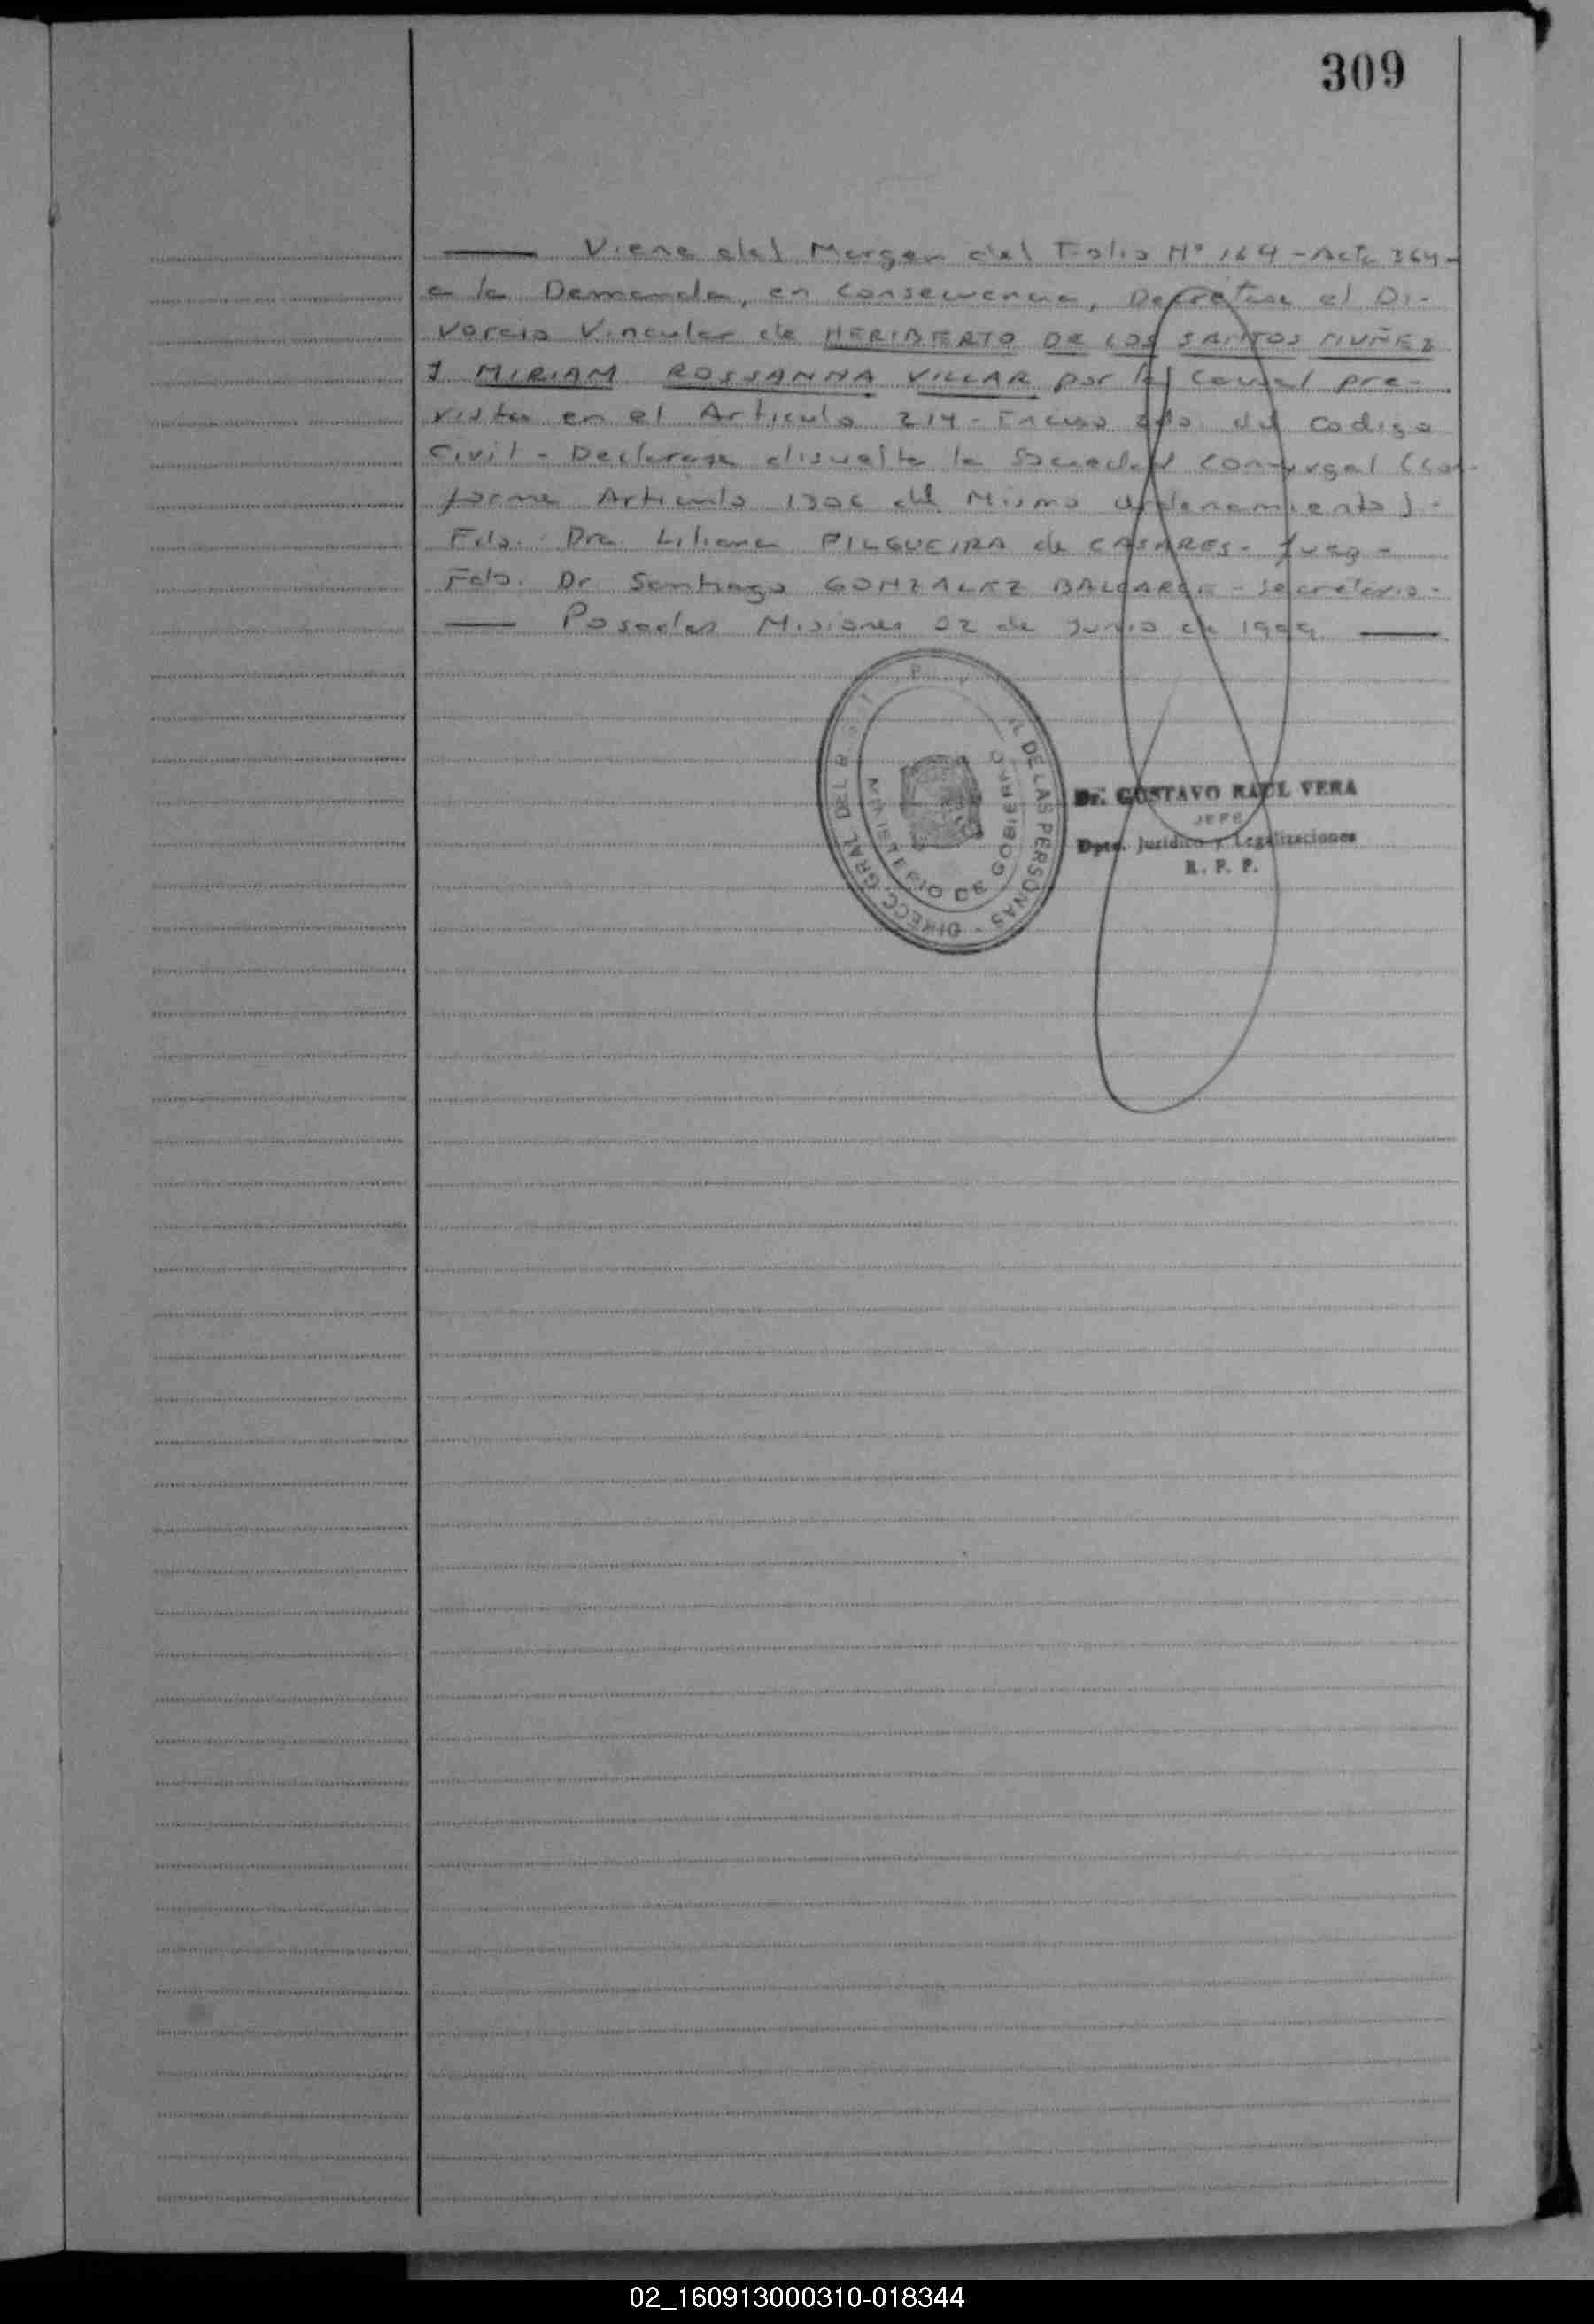 309
Viene del Margen del Folio Nº 164 - Acta 364 -
a la Demanda, en Consecuencia, Decretase el Di-
vorcio Vincular de HERIBERTO DE LOS SANTOS NUÑEZ
Y MIRIAM ROSSANNA VILLAR por la Causal pre-
vista en el Articulo 214 - Inciso 2do del Codigo
Civil - Declarase disuelta la Sociedad Conyugal (Con-
forme Articulo 1306 del Mismo Ordenamiento) -
Fdo. Dra. Liliana PILGUEIRA de CASARES - Juez -
Fdo. Dr Santiago GONZALEZ BALCARCE - Secretario -
Posadas Misiones 02 de Junio de
DIRECC. GRAL DEL DE LAS PERSONAS -
MINISTERIO DE GOBIERNO
Dr. GUSTAVO RAUL VERA
JEFE
Dpto. Jurídico y Legalizaciones
R. P. P.
02_160913000310-018344